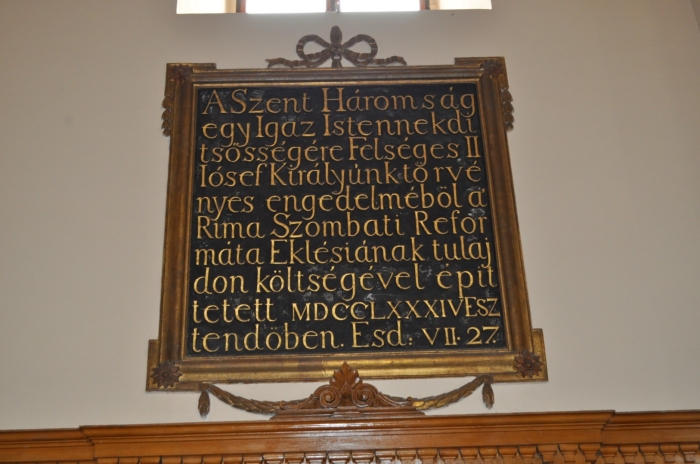 A Szent Háromság
egy Igaz Istennek di
tsősségére Felséges II
Iósef Királyúnk tőrvé
nyés engedelméböl á
Rima Szombati Refor
máta Eklésiának tulaj
don költségével épít
tetett MDCCLXXXIV Esz
tendöben. Esd: VII. 27.